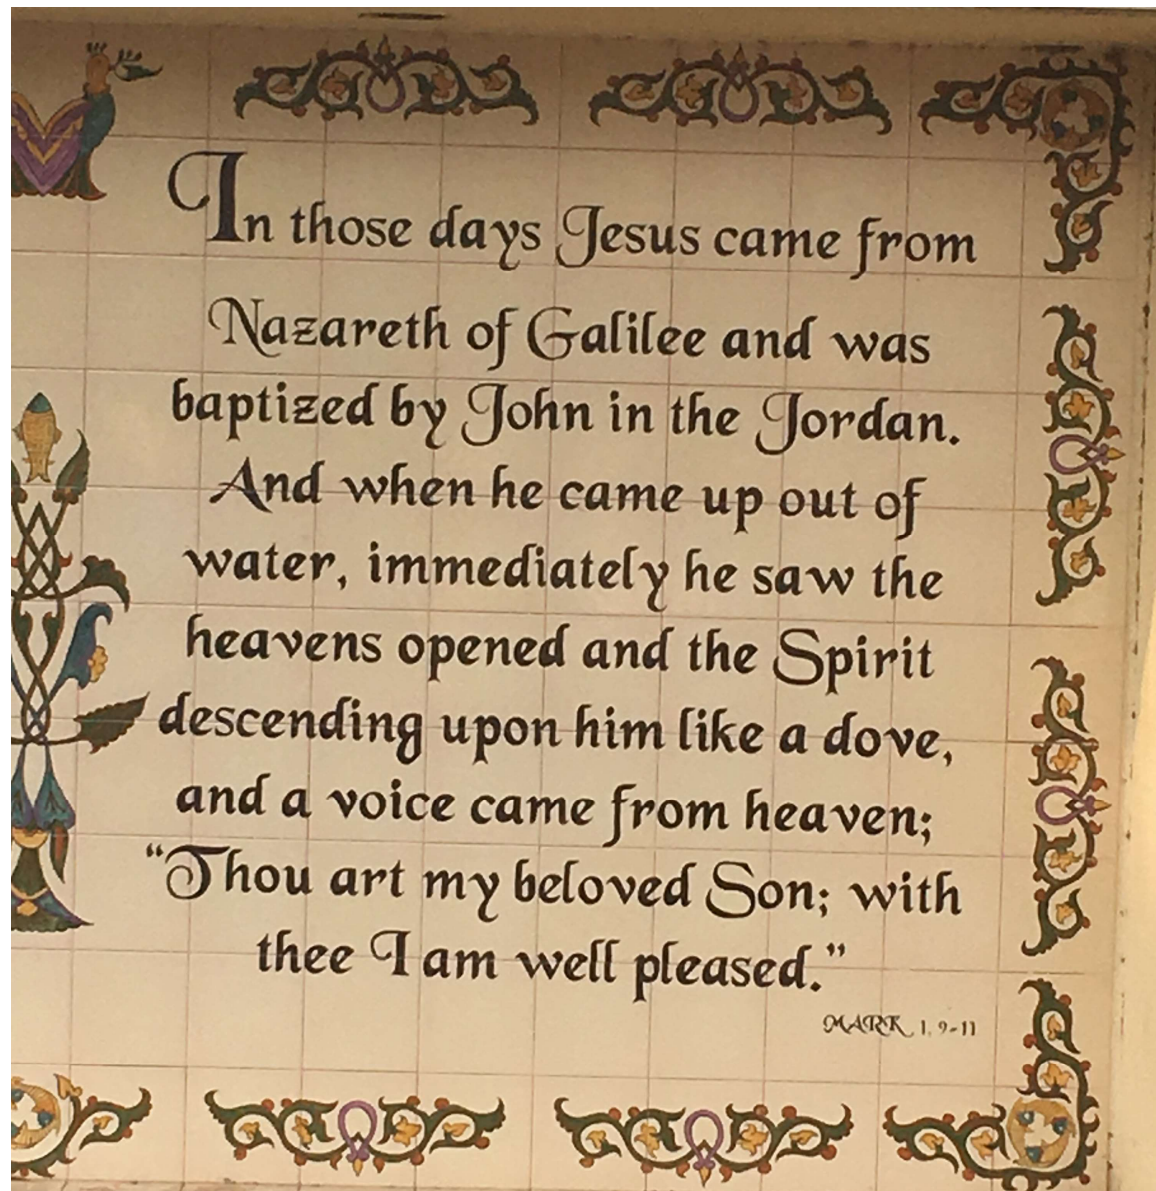 In those days Jesus came from
Nazareth of Galilee and was
baptized by John in the Jordan.
And when he came up out of
water, immediately he saw the
heavens opened and the Spirit
descending upon him like a dove,
and a voice came from heaven;
“Thou art my beloved Son; with
thee I am well pleased.”
MARK 1, 9-11